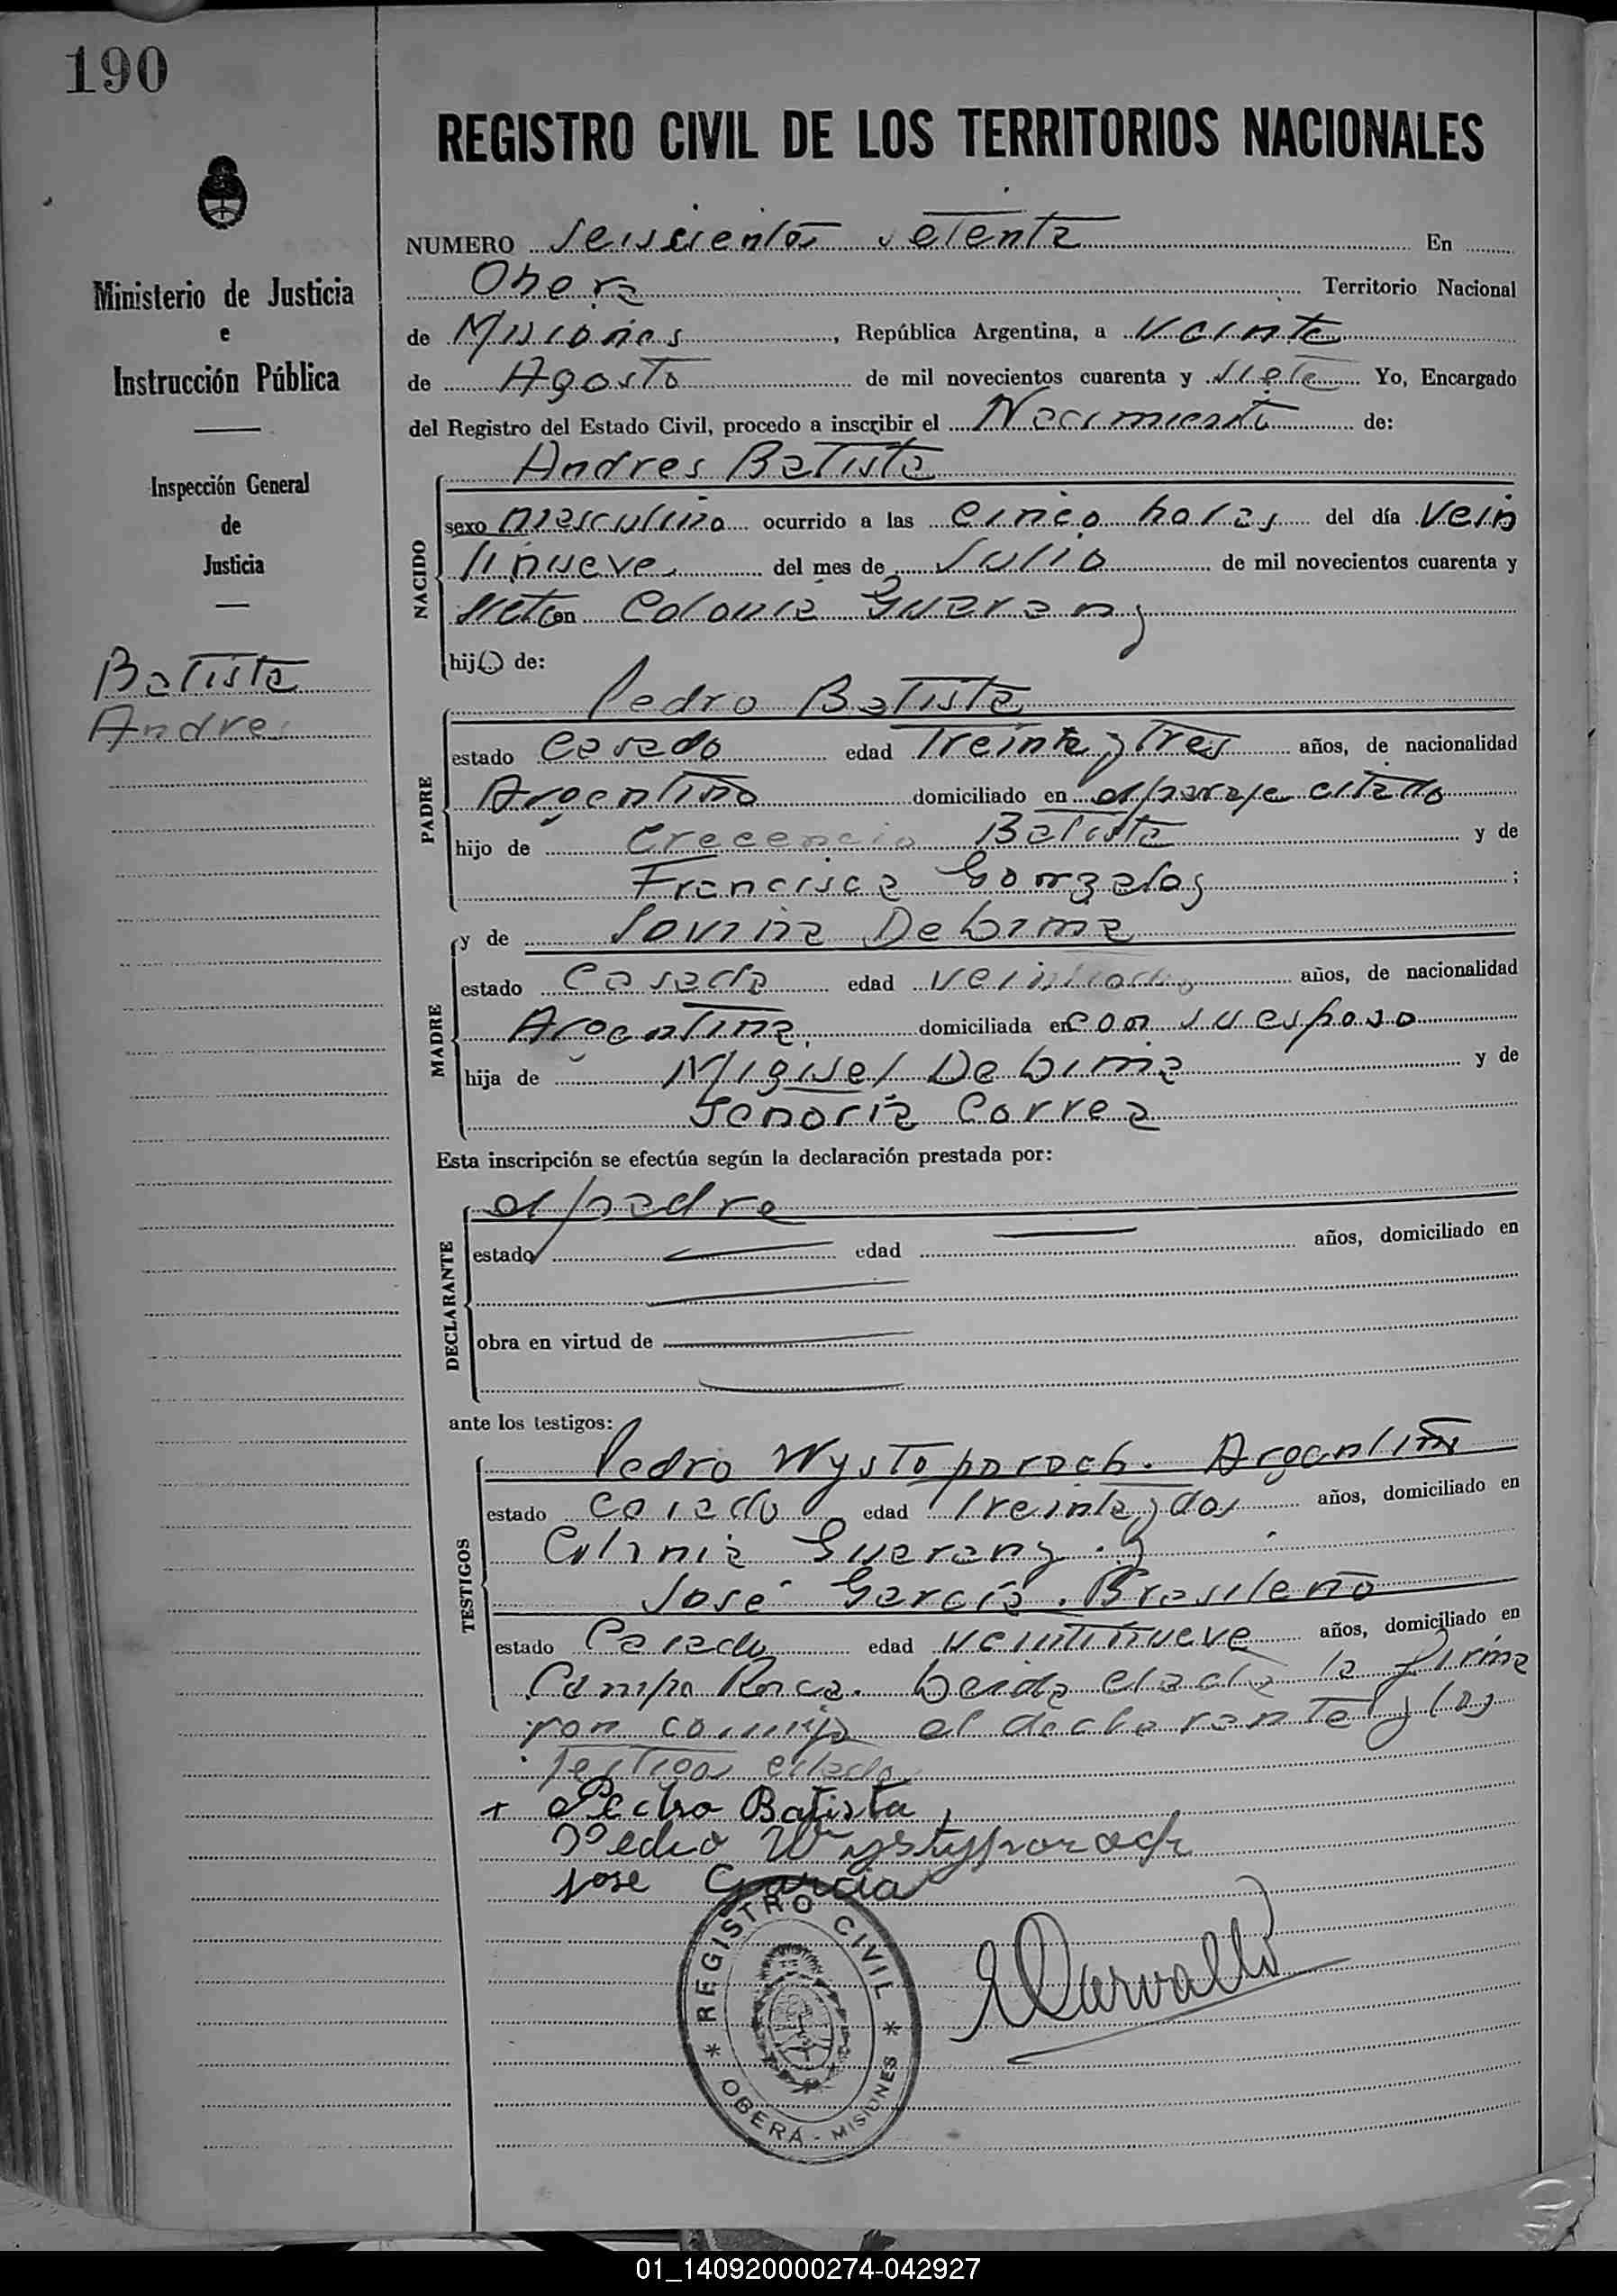 190
REGISTRO CIVIL DE LOS TERRITORIOS NACIONALES
NUMERO Seiscientos setenta En
Obera Territorio Nacional
de Misiones, República Argentina, a veinte
de Agosto de mil novecientos cuarenta y siete Yo, Encargado
del Registro del Estado Civil, procedo a inscribir el Nacimiento de:
Ministerio de Justicia
e
Instrucción Pública
Inspección General
de
Justicia
Batista
Andres
NACIDO
Andres Batista
sexo masculino ocurrido a las cinco horas del día vein
tinueve del mes de Julio de mil novecientos cuarenta y
siete en Colonia Guarany
hij(o) de:
PADRE
Pedro Batista
estado casado edad treinta y tres años, de nacionalidad
Argentino domiciliado en el paraje citado
hijo de Crecencio Batista y de
Francisca Gonzales;
MADRE
y de Savina De Lima
estado Casada edad veintiocho años, de nacionalidad
Argentina domiciliada en con su esposo
hija de Miguel De Lima y de
Senoria Correa
Esta inscripción se efectúa según la declaración prestada por:
DECLARANTE
el padre
estado edad años, domiciliado en
obra en virtud de
ante los testigos:
TESTIGOS
Pedro Wystoporoch. Argentino
estado casado edad treinta y dos años, domiciliado en
Colonia Guarany. y
José García. Brasileño
estado Casado edad veintinueve años, domiciliado en
Campo Roca. Leida el acta la firma
ron conmigo el declarante y los
testigos citados
+ Pedro Batista
Pedro Wystyporoch
Jose Garcia
REGISTRO CIVIL
* OBERÁ - MISIONES *
Carvallo
01_140920000274-042927